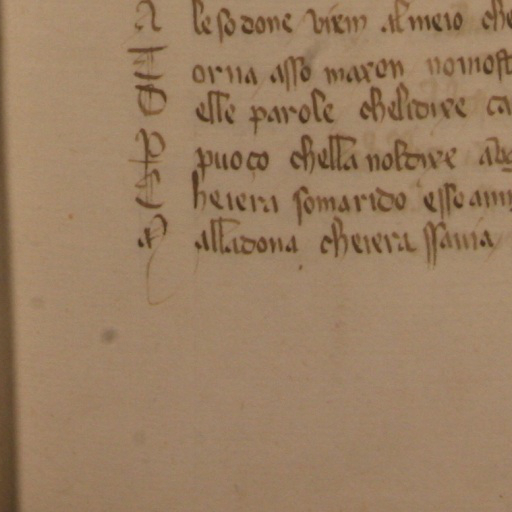 A le so done viem al meio che
T orna asso maxon no most
D elle parole chelidixe ca
P puoco chella noldixe ab
C heiera somarido esse am
M alladona cheiera ssauia